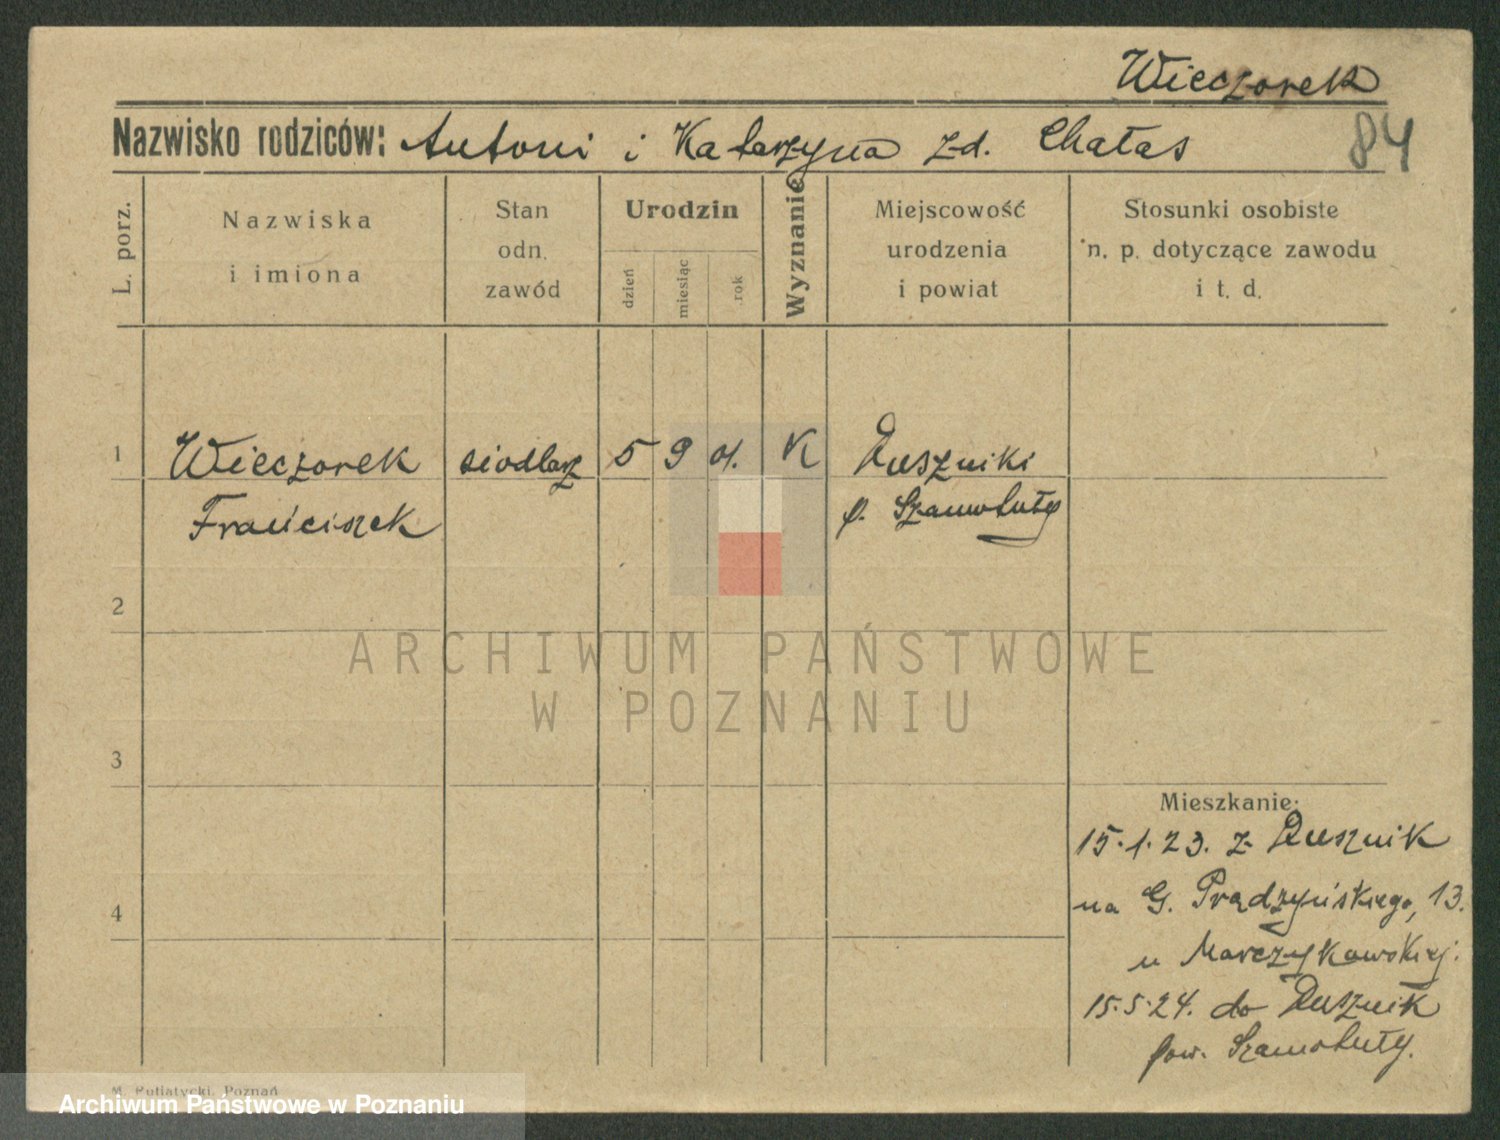 Wieczorek
Nazwisko rodziców: Antoni i Katarzyna z d. Chałas
84
L. porz.
Nazwiska
i imiona
Stan
odn.
zawód
Urodzin
dzień
miesiąc
rok
Wyznanie
Miejscowość
urodzenia
i powiat
Stosunki osobiste
n. p. dotyczące zawodu
i t. d.
1 Wieczorek siodlarz 5 9 01. K Duszniki
Franciszek p. Szamotuły
2
ARCHIWUM PAŃSTWOWE
W POZNANIU
3
Mieszkanie:
15.1.23. z Dusznik
4
na G. Prądzyńskiego, 13.
u Marczykowskiej.
15.5.24. do Dusznik
pow. Szamotuły.
M. Putiatycki, Poznań
Archiwum Państwowe w Poznaniu